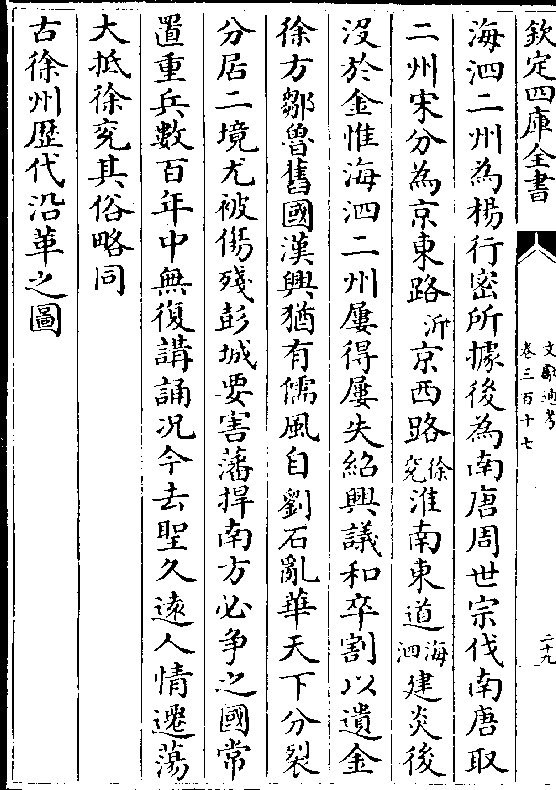 欽定四庫全書
文獻通考
卷三百十七
二十九
海泗二州為楊行密所據後為南唐周世宗伐南唐取
二州宋分為京東路沂京西路徐兖淮南東道海泗建炎後
没於金惟海泗二州屢得屢失紹興議和卒割以遺金
徐方鄒魯舊國漢興猶有儒風自劉石亂華天下分裂
分居二境尤被傷殘彭城要害藩捍南方必争之國常
置重兵數百年中無復講誦况今去聖久逺人情遷蕩
大抵徐兖其俗略同
古徐州歴代沿革之圖